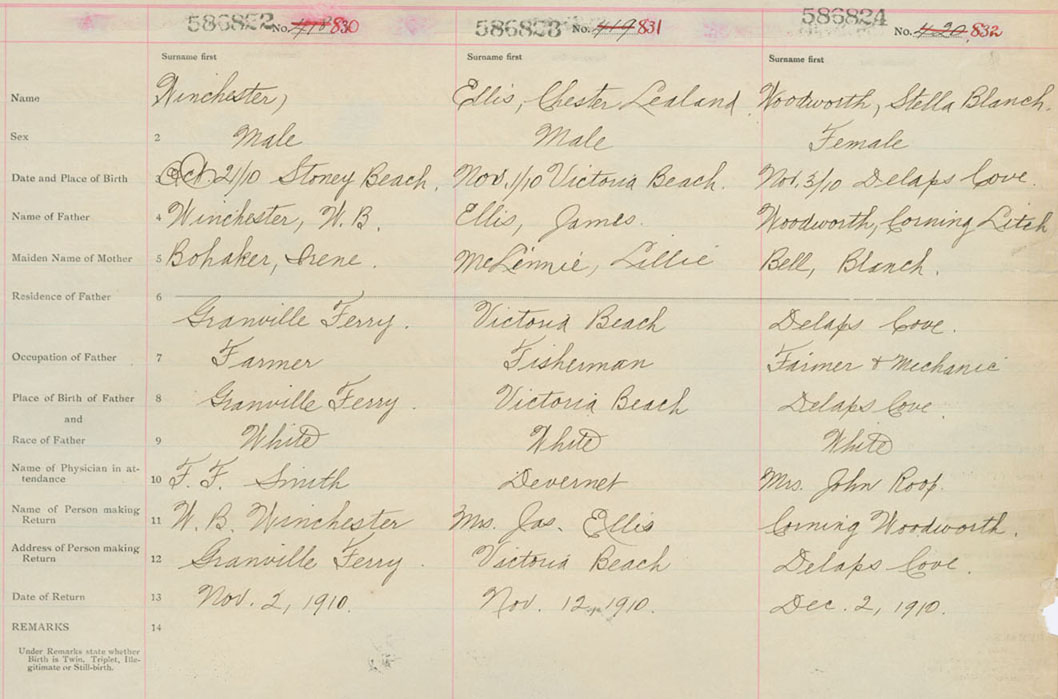 586822 No. 418 830 586823 No. 419 831 586824 No. 420 832
Surname first Surname first Surname first
Name Winchester, Ellis, Chester Lealand Woodworth, Stella Blanch.
Sex 2 Male Male Female
Date and Place of Birth 3 Oct. 21/10 Stoney Beach. Nov. 1/10 Victoria Beach. Nov. 3/10 Delaps Cove.
Name of Father 4 Winchester, W. B. Ellis, James. Woodworth, Corning Litch
Maiden Name of Mother 5 Bohaker, Irene. McLennie, Lillie Bell, Blanch.
Residence of Father 6
Granville Ferry. Victoria Beach Delaps Cove.
Occupation of Father 7 Farmer Fisherman Farmer & Mechanic
Place of Birth of Father 8 Granville Ferry. Victoria Beach Delaps Cove.
and
Race of Father 9 White White White
Name of Physician in at-
tendance 10 F. F. Smith Devernet Mrs. John Roop.
Name of Person making
Return 11 W. B. Winchester Mrs. Jas. Ellis Corning Woodworth.
Address of Person making
Return 12 Granville Ferry. Victoria Beach Delaps Cove.
Date of Return 13 Nov. 2, 1910. Nov. 12, 1910. Dec. 2, 1910.
REMARKS 14
Under Remarks state whether
Birth is Twin, Triplet, Ille-
gitimate or Still-birth.